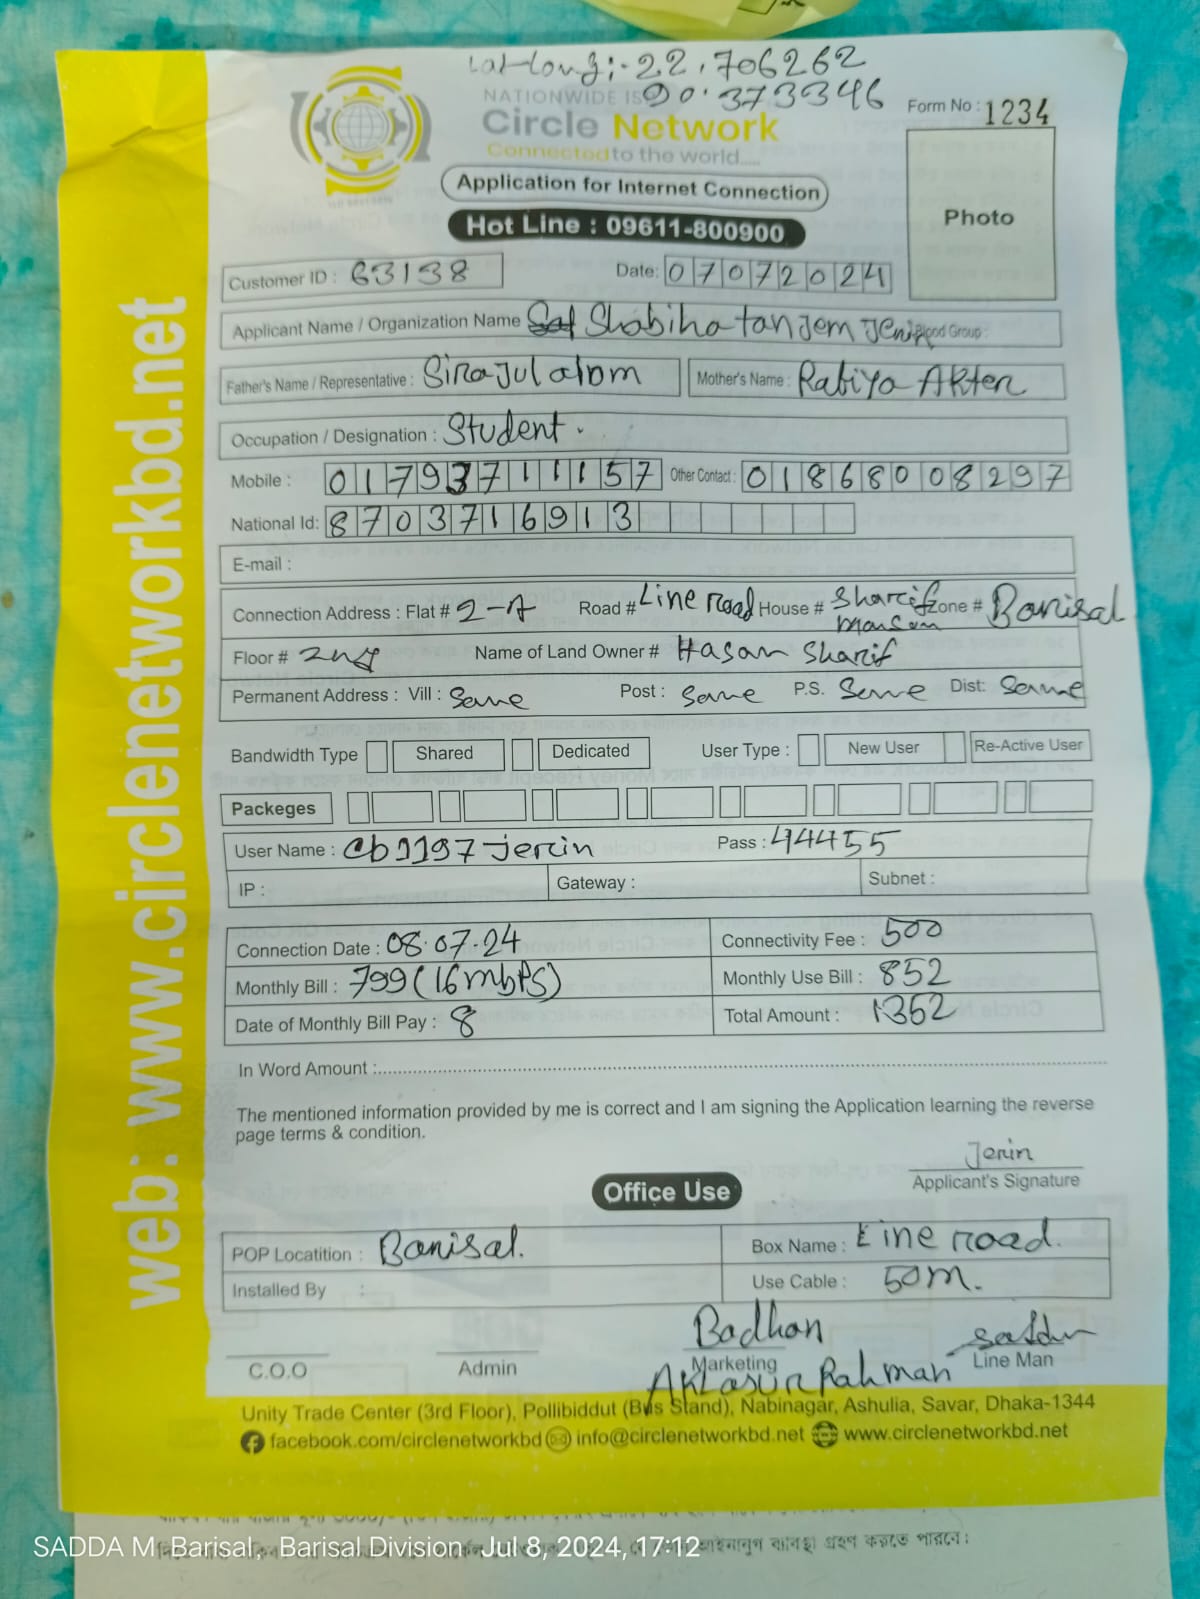 Lat-Long:-22.706262
90.373346
NATIONWIDE IS
Circle Network
Connected to the world.....
Form No : 1234
Application for Internet Connection
Photo
Hot Line : 09611-800900
Customer ID : 63138
Date: 07072024
Applicant Name / Organization Name Shabiha tanjem Jenin Blood Group :
Father's Name / Representative : Sirajul alom Mother's Name : Rabiya Akter
Occupation / Designation : Student.
Mobile : 01793711157 Other Contact : 01868008297
National Id: 8703716913
E-mail :
Connection Address : Flat # 2-A Road # Line road House # Sharif Mansan Zone # Barisal
Floor # 2nd Name of Land Owner # Hasan Sharif
Permanent Address : Vill : Same Post : Same P.S. Same Dist: Same
Bandwidth Type Shared Dedicated User Type : New User Re-Active User
Packeges
User Name : cb1197jerin Pass : 44455
IP : Gateway : Subnet :
Connection Date : 08.07.24 Connectivity Fee : 500
Monthly Bill : 799 (16mbps) Monthly Use Bill : 852
Date of Monthly Bill Pay : 8 Total Amount : 1352
In Word Amount :
The mentioned information provided by me is correct and I am signing the Application learning the reverse
page terms & condition.
Jenin
Applicant's Signature
Office Use
POP Locatition : Barisal. Box Name : Line road.
Installed By : Use Cable : 50m.
Badhon
C.O.O Admin Marketing Line Man
Aklasur Rahman
Unity Trade Center (3rd Floor), Pollibiddut (Bus Stand), Nabinagar, Ashulia, Savar, Dhaka-1344
facebook.com/circlenetworkbd info@circlenetworkbd.net www.circlenetworkbd.net
web: www.circlenetworkbd.net
SADDA M, Barisal, Barisal Division, Jul 8, 2024, 17:12
ব্যবস্থা গ্রহণ করতে পারবে।